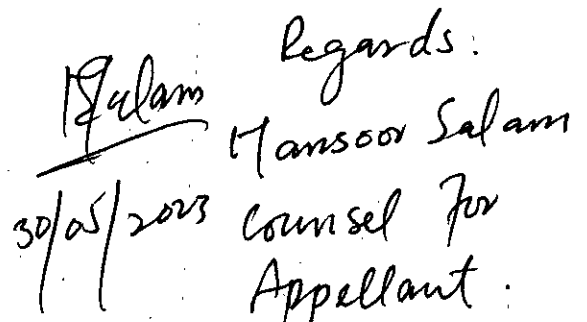 Regards.
MSalam
Mansoor Salam
30/05/2023
Counsel For
Appellant.